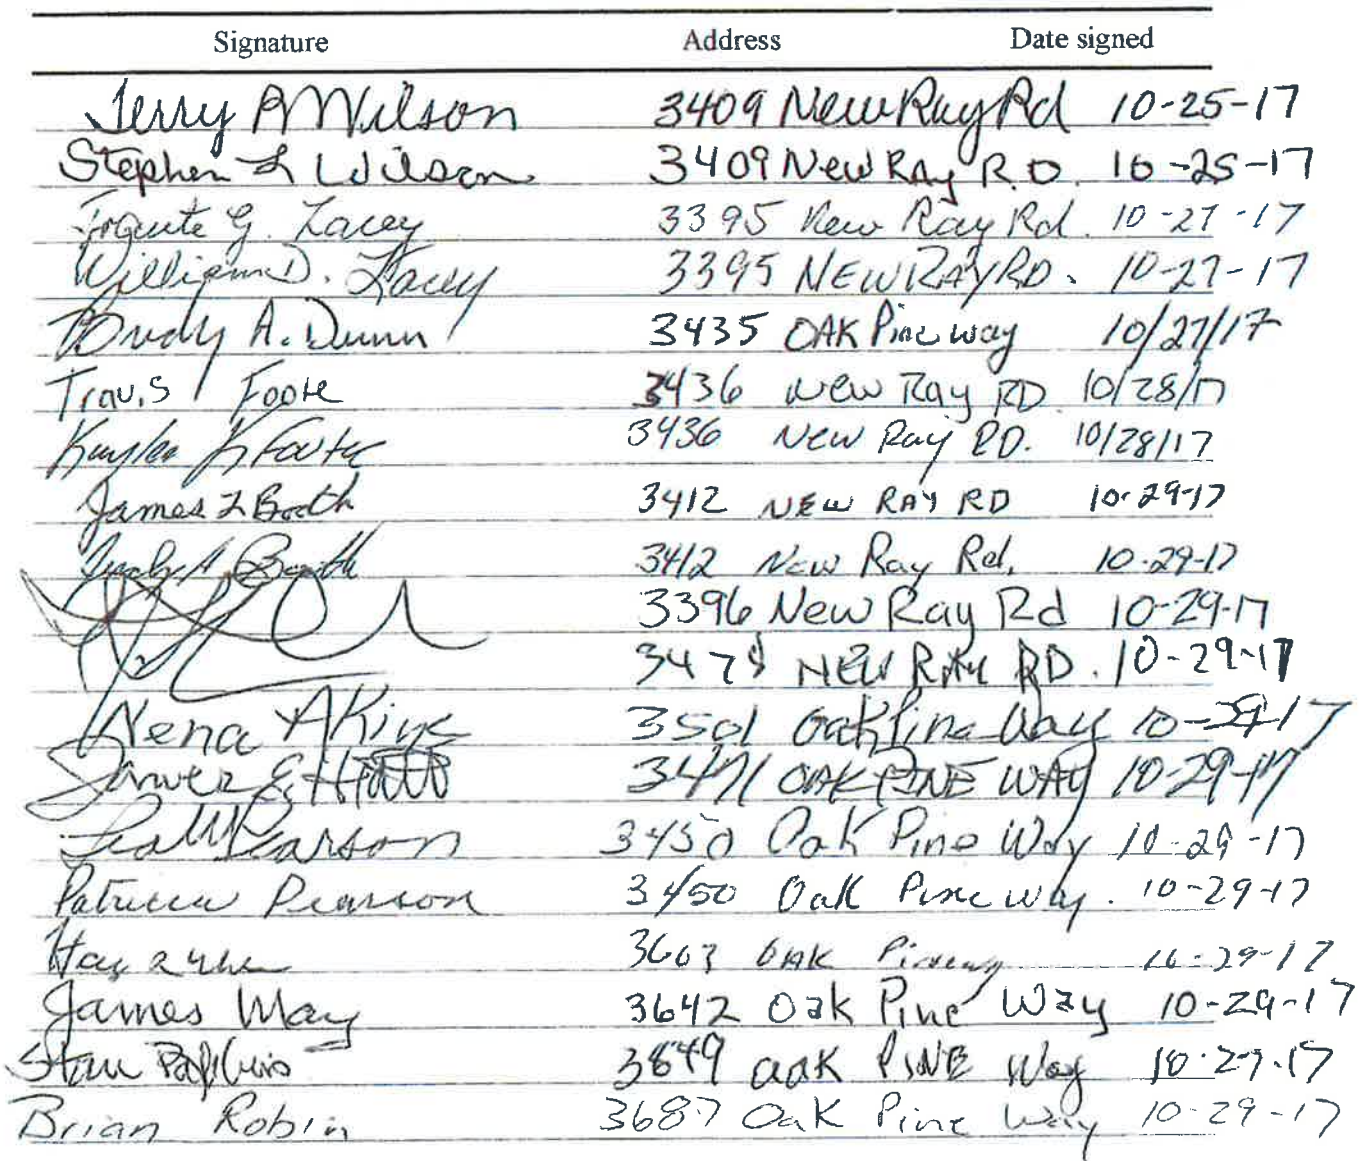 Signature Address Date signed
Jerry A Wilson 3409 New Ray Rd 10-25-17
Stephen L Wilson 3409 New Ray R.D. 10-25-17
G. Lacey 3395 New Ray Rd. 10-27-17
William D. Lacey 3395 NEW RAY RD. 10-27-17
A. Dunn 3435 OAK Pine way 10/27/17
Travis Foote 3436 New Ray RD 10/28/17
Kayla K Foote 3436 New Ray RD. 10/28/17
James L Booth 3412 NEW RAY RD 10-29-17
Booth 3412 New Ray Rd. 10-29-17
3396 New Ray Rd 10-29-17
NEW RAY RD. 10-29-17
Nena Akins 3501 Oak Pine Way 10-29-17
James E. Hiatt 3471 OAK PINE WAY 10-29-17
Pearson 3450 Oak Pine Way 10-29-17
Patricia Pearson 3450 Oak Pine Way. 10-29-17
3603 OAK 10-29-17
James May 3642 Oak Pine Way 10-29-17
3649 OAK PINE Way 10-29-17
Brian Robin 3687 Oak Pine Way 10-29-17